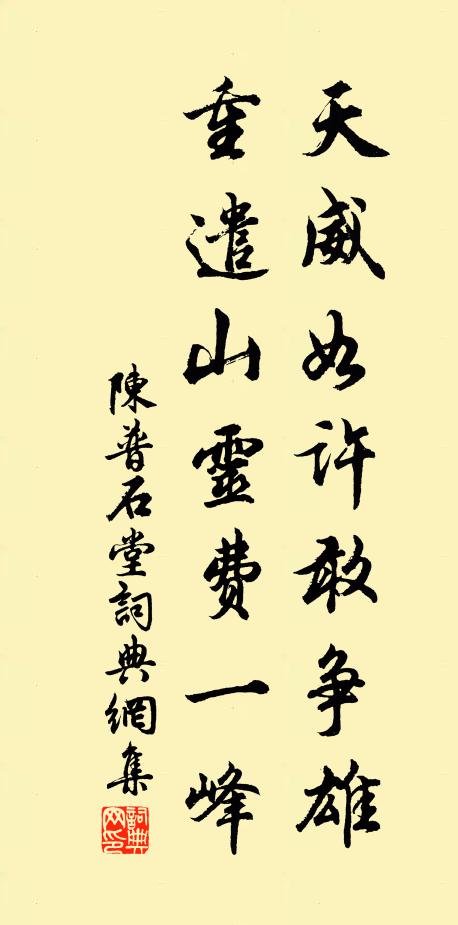 天威如許敢爭雄
重遣山靈費一峰
陳普石堂詞典網集
詞典网印